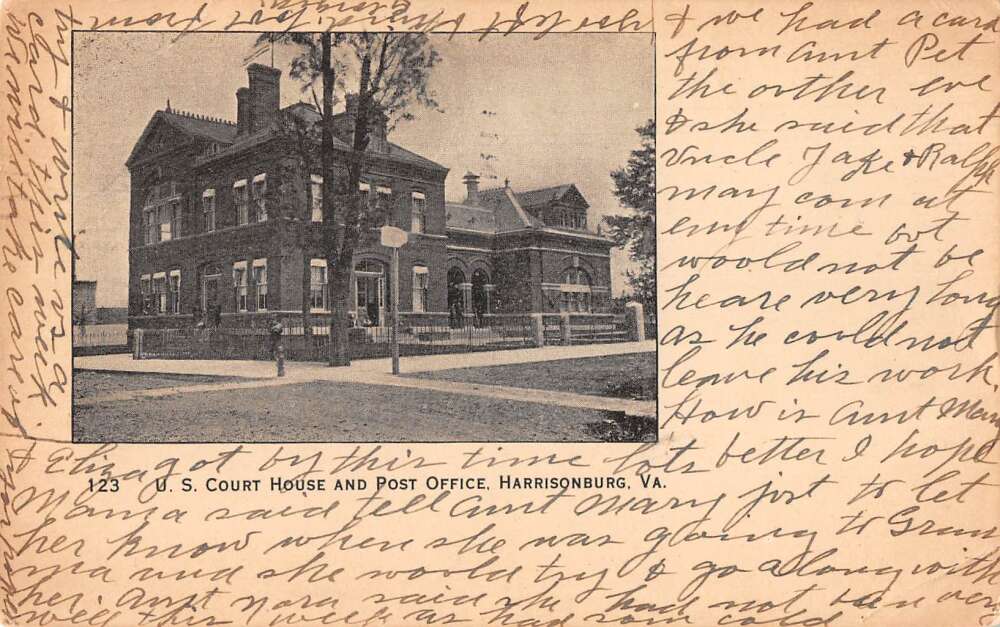 & we had a card
from Aunt Pet
the orther eve
& she said that
Uncle Jake & Ralph
may com at
eny time but
woold not be
heare very long
as he coold not
leave his work.
How is Aunt Mary
Eliza got by this time lots better I hope
Mama said tell Aunt Mary jost to let
her know when she was going to Gran
ma and she woold try & go along with
her. Aunt Nora said she had not ben very
well this week as had som cold
123 U. S. COURT HOUSE AND POST OFFICE, HARRISONBURG, VA.
& write os a
card this week